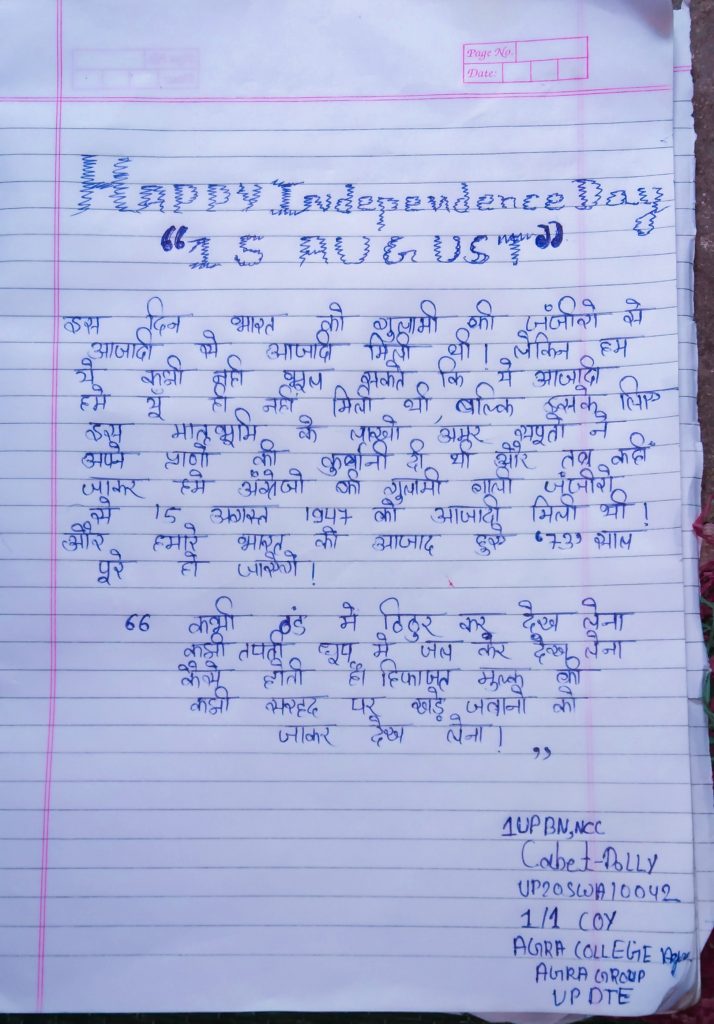 Page No.
Date:
Happy Independence Day
“15 AUGUST”
इस दिन भारत को गुलामी की जंजीरो से
आजादी से आजादी मिली थी! लेकिन हम
ये कभी नही भूल सकते कि ये आजादी
हमे यूँ ही नहीं मिली थी, बल्कि इसके लिए
इस मातृभूमि के लाखो अमर सपूतो ने
अपने प्राणो की कुर्बानी दी थी और तब कहीं
जाकर हमे अंग्रेजो की गुलामी वाली जंजीरो
से 15 अगस्त 1947 को आजादी मिली थी!
और हमारे भारत को आजाद हुए “73” साल
पूरे हो जायेगे!
“ कभी ठंड मे ठिठुर कर देख लेना
कभी तपती धूप मे जल कर देख लेना
कैसे होती है हिफाजत मुल्क की
कभी सरहद पर खड़े जवानो को
जाकर देख लेना! ”
1UPBN,NCC
Cabet-Dolly
UP20SWA10042
1/1 COY
AGRA COLLEGE Agra
AGRA GROUP
UP DTE